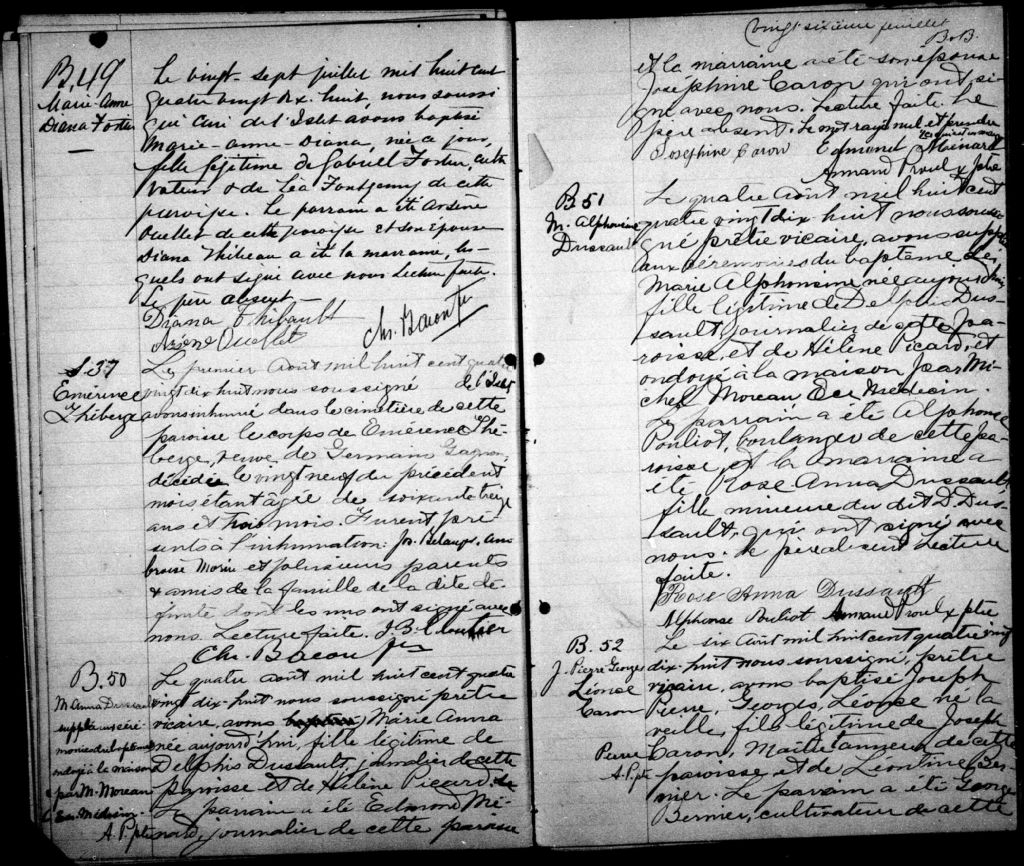 B,49
Marie-Anne
Diana Fortin
Le vingt-sept juillet mil huit cent
quatre vingt dix-huit, nous soussi
gné curé de l'Islet avons baptisé
Marie-Anne-Diana, née ce jour,
fille légitime de Gabriel Fortin, culti
vateur & de Léa Fontgamy de cette
paroisse. Le parrain a été Arsène
Ouellet de cette paroisse et son épouse
Diana Thibeau a été la marraine, les
quels ont signé avec nous. Lecture faite.
Le père absent.
Diana Thibault
Arsène Ouellet
Chs. Bacon Ptre
S 37
Emérence
Théberge
Le premier août mil huit cent quatre
vingt dix huit nous soussigné de l'Islet
avons inhumé dans le cimetière de cette
paroisse le corps de Emérence Thé-
berge, veuve de Germain Gagnon,
décédée le vingt neuf du précédent
mois étant âgée de soixante treize
ans et trois mois. Furent pré-
sents à l'inhumation: Jos. Belanger, Am
broise Morin et plusieurs parents
& amis de la famille de la dite dé-
funte dont les uns ont signé avec
nous. Lecture faite. J. B. Cloutier
Chs. Bacon Ptre
B.50
M Anna Dussault
suppléé aux céré-
monies du baptême
ondoyé à la maison
par M. Moreau
Ecr Médecin.
A. P. ptre
Le quatre août mil huit cent quatre
vingt dix-huit nous soussigné prêtre
vicaire, avons Marie Anna
née aujourd'hui, fille légitime de
Delphis Dussault, journalier de cette
paroisse et de Hélène Picard.
Le parrain a été Edmond Mé-
nard, journalier de cette paroisse
Vingt sixième feuillet
B.B.
et la marraine a été son épouse
Joséphine Caron qui ont si-
gné avec nous. Lecture faite. Le
père absent. Le mot rayé nul et
Josephine Caron Edmond Ménard
Armand Proulx ptre
B 51
M. Alphonsine
Dussault
Le quatre août mil huit cent
quatre vingt dix huit nous sous-
gné prêtre vicaire, avons suppléé
aux cérémonies du baptême de
Marie Alphonsine née aujourd'hui,
fille légitime de Delphis Dus-
sault journalier de cette pa-
roisse, et de Hélène Picard, et
ondoyé à la maison par Mi-
chel Moreau Ecr Médecin.
Le parrain a été Alphonse
Pouliot, boulanger de cette pa-
roisse, et la marraine a
été Rose Anna Dussault,
fille mineure du dit D. Dus-
sault, qui ont signé avec
nous. Le père absent Lecture
faite.
Rose Anna Dussault
Alphonse Pouliot Armand Proulx ptre
B. 52
J. Pierre Georges
Léonse
Caron
Le six août mil huit cent quatre vingt
dix-huit nous soussigné, prêtre
vicaire, avons baptisé Joseph
Pierre, Georges, Léonse né la
veille, fils légitime de Joseph
Pierre
A. P. ptre
Caron, Maître tanneur de cette
paroisse et de Léontine Ber-
nier. Le parrain a été George
Bernier, cultivateur de cette